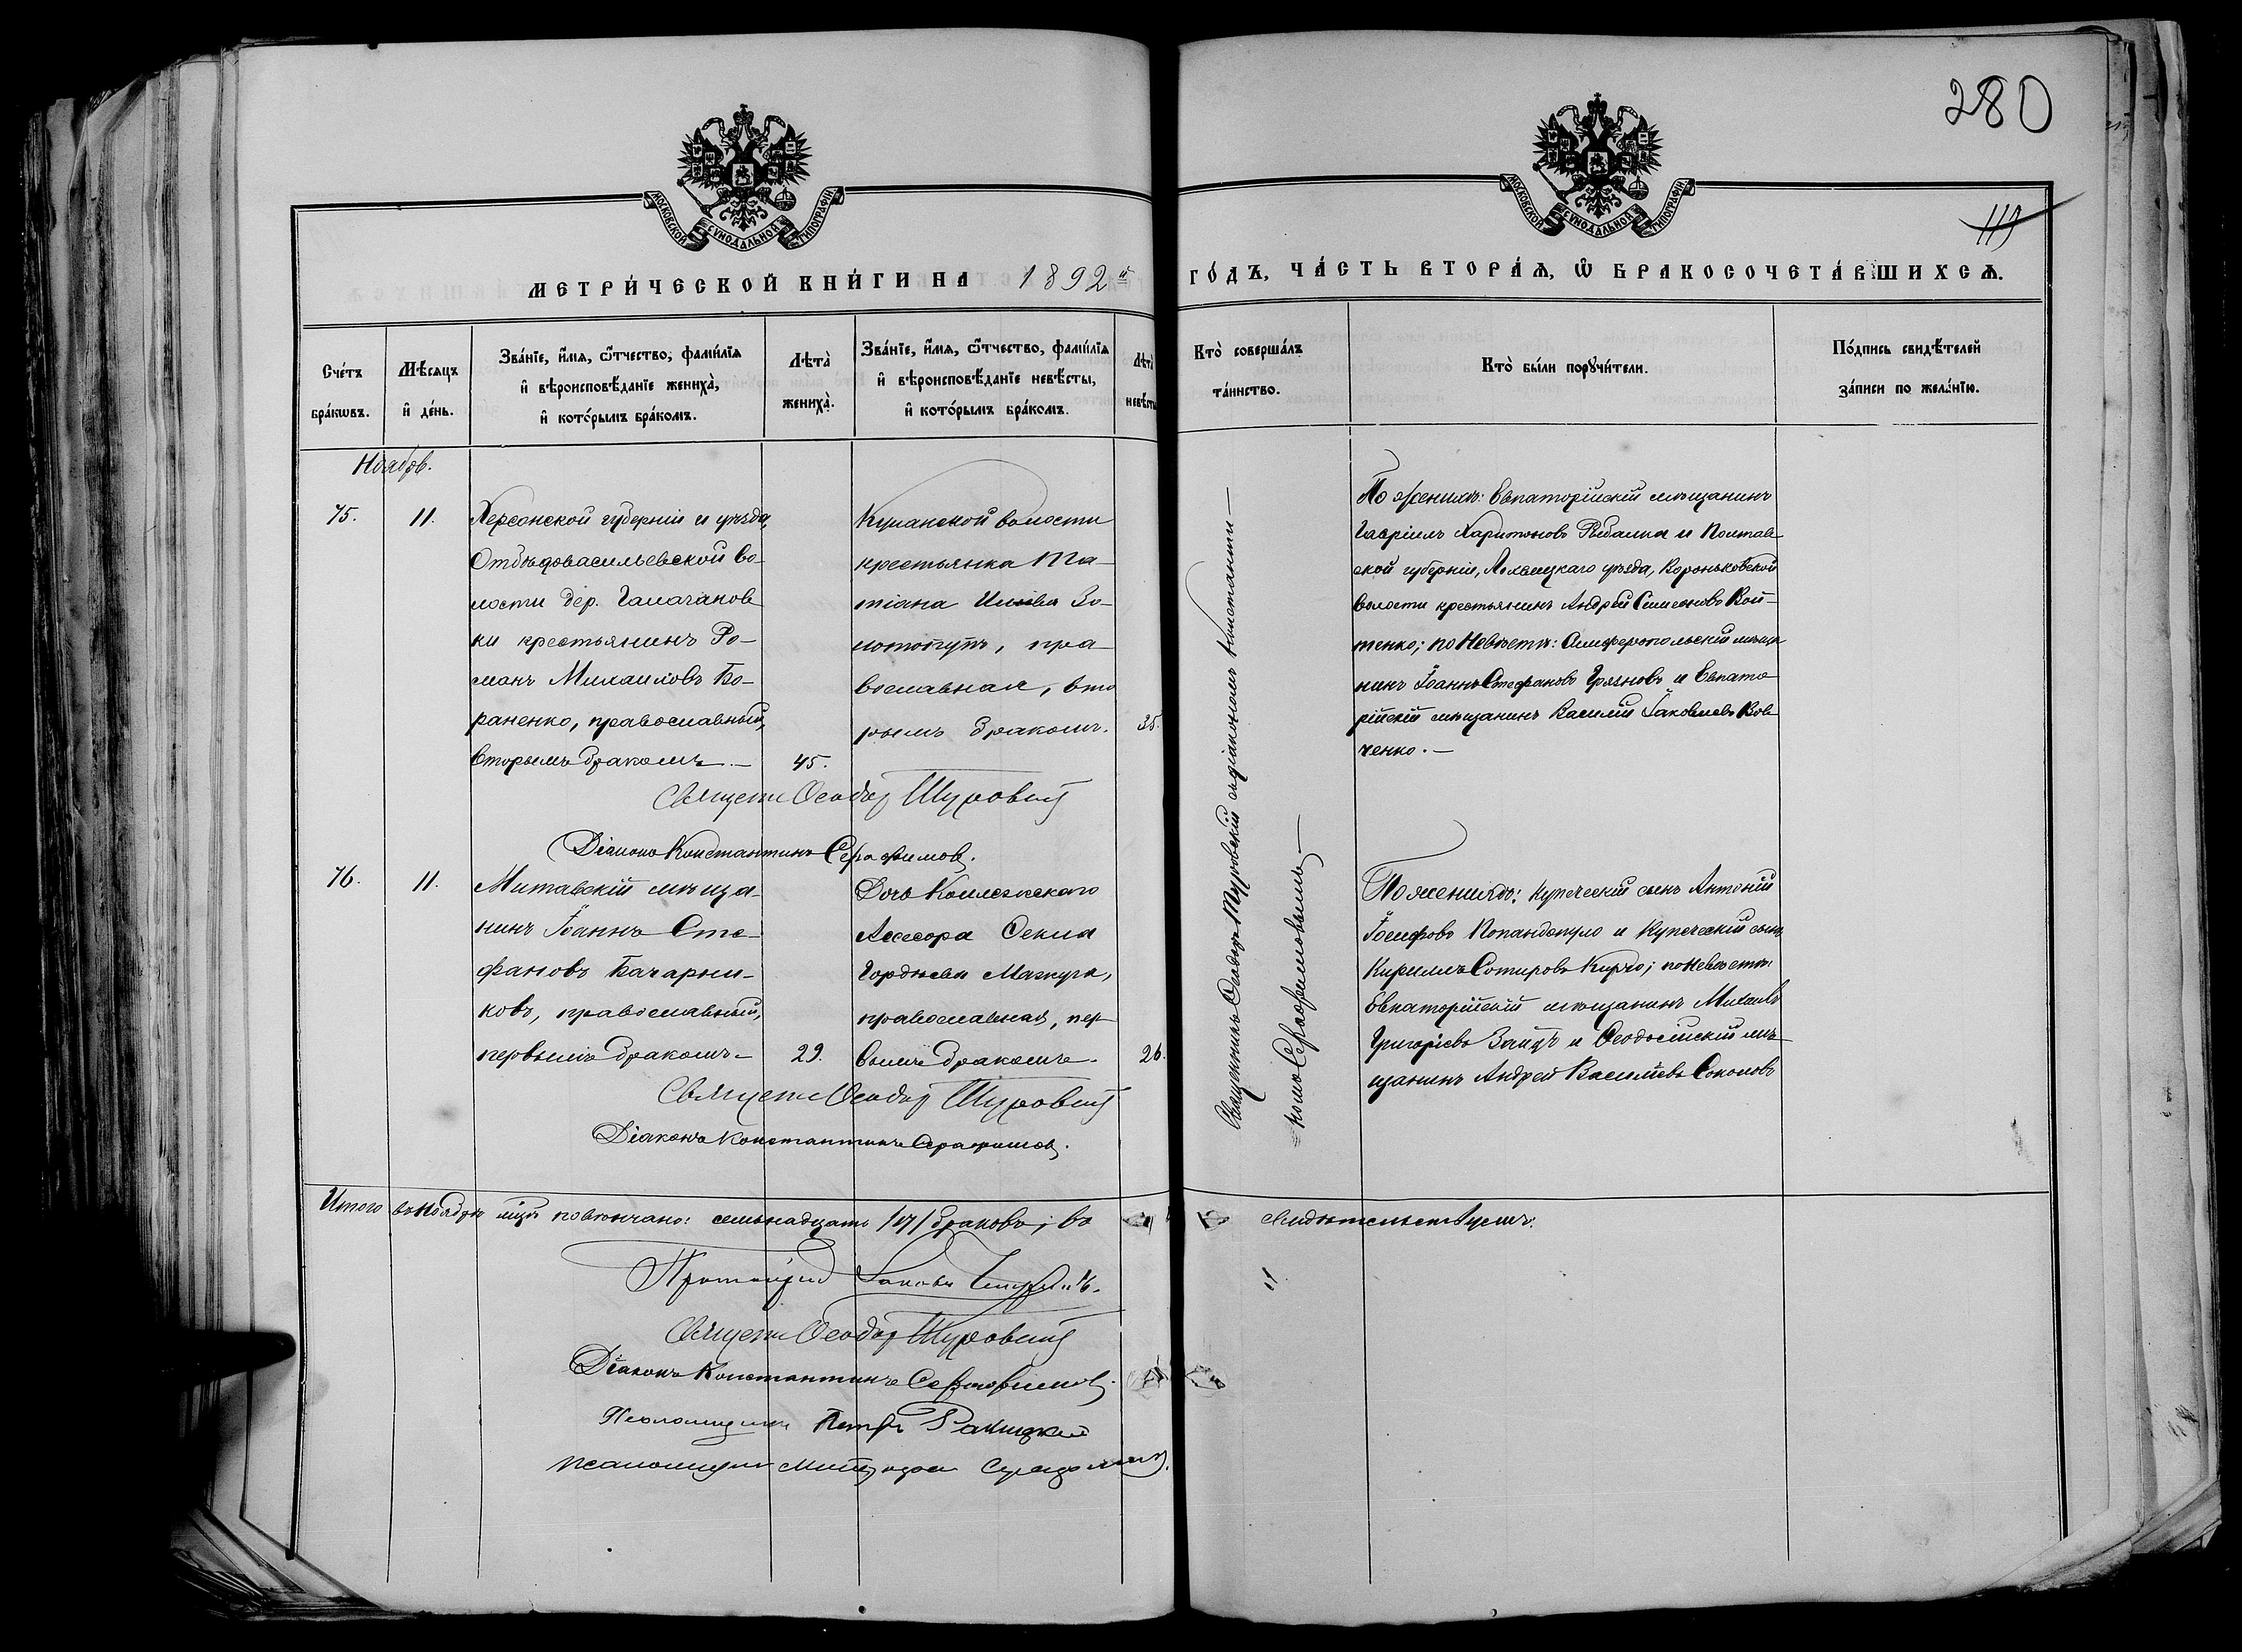 280
119
МОСКОВСКОЙ СѴНОДАЛЬНОЙ ТИПОГРАФІИ
МОСКОВСКОЙ СѴНОДАЛЬНОЙ ТИПОГРАФІИ
МЕТРИ́ЧЕСКОЙ КНИ́ГИ НА 1892й
ГО́ДЪ, ЧА́СТЬ ВТОРА́Ѧ, Ѽ БРАКОСОЧЕТА́ВШИХСѦ.
Сче́тъ бра́кѡвъ.
Мѣ́сяцъ и҆ де́нь.
Зва́нїе, и҆́мѧ, ѻ҆́тчество, фамѝлїѧ
и҆ вѣроисповѣ́данїе жениха̀,
и҆ кото́рымъ бра́комъ.
Лѣта̀
жениха̀.
Зва́нїе, и҆́мѧ, ѻ҆́тчество, фамѝлїѧ
и҆ вѣроисповѣ́данїе невѣ́сты,
и҆ кото́рымъ бра́комъ.
Лѣта̀
невѣ́сты
Кто̀ соверша́лъ
та́инство.
Кто̀ бы́ли порꙋчи́тели.
По́дпись свидѣ́телей
за́писи по жела́нїю.
Ноябрь.
75.
11.
Херсонской губерніи и уѣзда
Отбѣдовасильевской во-
лости дер.
ки крестьянинъ Ро-
манъ Михаиловъ Бо-
раненко, православный,
вторымъ бракомъ.—
45.
волости
крестьянка Та-
тіана Зо-
лотопупъ, пра-
вославная, вто
рымъ бракомъ.
35.
Священникъ Ѳеодоръ Шуровскій съ діакономъ Константи-
=номъ Серафимовымъ.—
По женихѣ: Евпаторійскій мѣщанинъ
Гавріилъ Харитоновъ Рыбалка и Полтав
ской губерніи, Лохвицкаго уѣзда, Вороньковской
волости крестьянинъ Андрей Симеоновъ Вой-
тенко; по Невѣстѣ: Симферопольскій мѣща
нинъ Іоаннъ Стефановъ Грязновъ и Евпато
рійскій мѣщанинъ Василій Іаковлевъ Вов
ченко.—
Священ. Ѳеодоръ Шуровскій
Діаконъ Константинъ Серафимовъ.
76.
11.
Митавскій мѣща-
нинъ Іоаннъ Сте-
фановъ Бачарни-
ковъ, православный,
первымъ бракомъ.
29.
Дочь Коллежскаго
Ассесора Ѳекла
Гордѣева Мазкура,
православная, пер-
вымъ бракомъ.
26.
По женихѣ: Купеческій сынъ Антоній
Іосифовъ Копандопуло и Купеческій сынъ
Кириллъ Сотировъ Кирчо; по Невѣстѣ:
Евпаторійскій мѣщанинъ Михаилъ
Григорьевъ Заицъ и Ѳеодосійскій мѣ-
щанинъ Андрей Василіевъ Соколовъ
Священ. Ѳеодоръ Шуровскій
Діаконъ Константинъ Серафимовъ.
Итого въ Ноябрѣ мцѣ повѣнчано: семьнадцать /17/ браковъ; въ
свидѣтельствуемъ:
Протоіерей Іаковъ
Священ. Ѳеодоръ Шуровскій
Діаконъ Константинъ Серафимовъ.
Псаломщикъ Петръ Ракицкій
Псаломщикъ